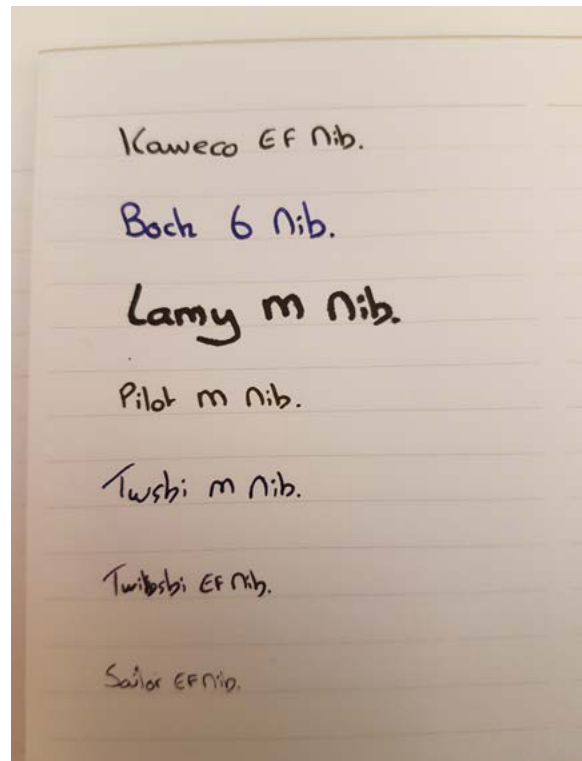 Kaweco EF Nib.
Boch 6 Nib.
Lamy m Nib.
Pilot m Nib.
Twsbi m Nib.
Twibsbi EF Nib.
Sailor EF Nib.